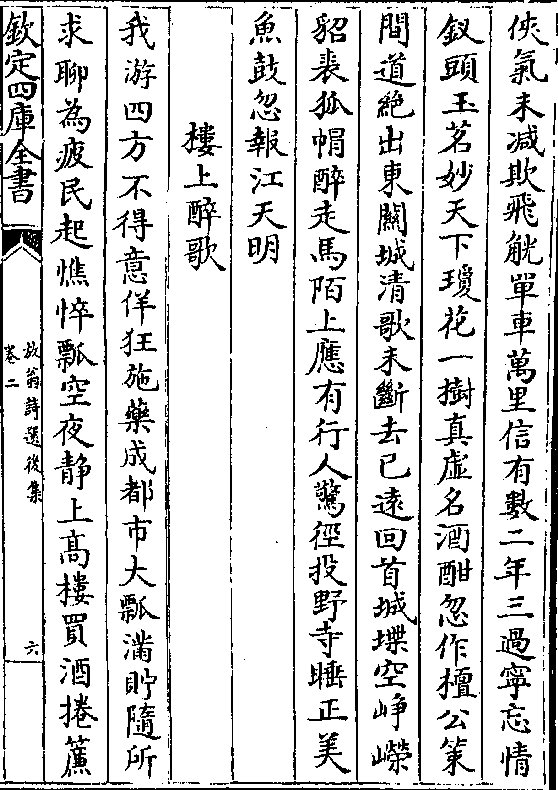 俠氣未減欺飛觥單車萬里信有數二年三過寧忘情
釵頭玉茗妙天下瓊花一樹真虛名酒酣忽作檀公策
間道絶出東關城清歌未斷去已遠回首城堞空崢嶸
貂裘狐帽醉走馬陌上應有行人驚徑投野寺睡正美
魚鼓忽報江天明
樓上醉歌
我游四方不得意佯狂施藥成都市大瓢滿貯隨所
求聊為疲民起憔悴瓢空夜静上髙樓買酒捲簾
欽定四庫全書
放翁詩選後集
卷二
六